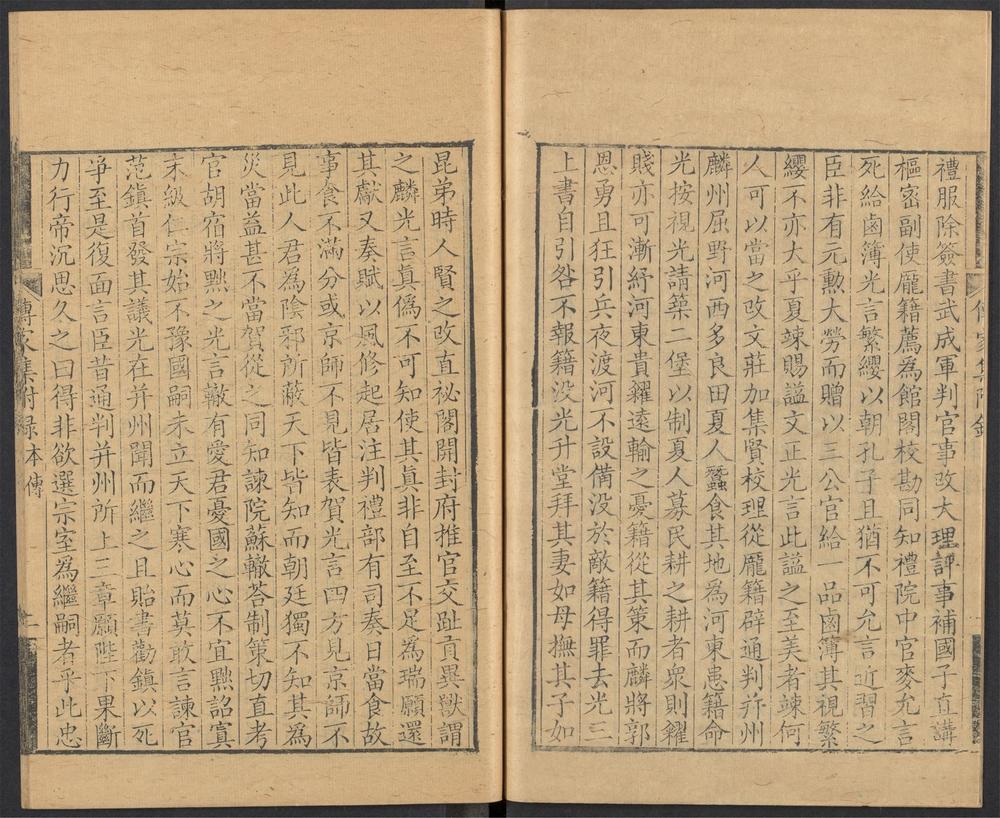 禮服除簽書武成軍判官事改大理評事補國子直講
樞密副使龐籍薦為館閣校勘同知禮院中官麥允言
死給鹵簿光言繁纓以朝孔子且猶不可允言近習之
臣非有元勳大勞而贈以三公官給一品鹵簿其視繁
纓不亦大乎夏竦賜謚文正光言此謚之至美者竦何
人可以當之改文莊加集賢校理從龐籍辟通判并州
麟州屈野河西多良田夏人蠶食其地為河東患籍命
光按視光請築二堡以制夏人募民耕之耕者衆則糴
賤亦可漸紓河東貴糴遠輸之憂籍從其策而麟將郭
恩勇且狂引兵夜渡河不設備没於敵籍得罪去光三
上書自引咎不報籍没光升堂拜其妻如母撫其子如
傳家集附錄
昆弟時人賢之改直祕閣開封府推官交趾貢異獸謂
之麟光言真偽不可知使其真非自至不足為瑞願還
其獻又奏賦以風修起居注判禮部有司奏日當食故
事食不滿分或京師不見皆表賀光言四方見京師不
見此人君為陰邪所蔽天下皆知而朝廷獨不知其為
災當益甚不當賀從之同知諫院蘇轍荅制策切直考
官胡宿將黜之光言轍有愛君憂國之心不宜黜詔寘
末級仁宗始不豫國嗣未立天下寒心而莫敢言諫官
范鎮首發其議光在并州聞而繼之且貽書勸鎮以死
爭至是復面言臣昔通判并州所上三章願陛下果斷
力行帝沉思久之曰得非欲選宗室為繼嗣者乎此忠
傳家集附録本傳
二